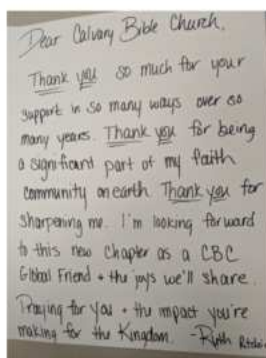 Dear Calvary Bible Church,
Thank you so much for your
support in so many ways over so
many years. Thank you for being
a significant part of my faith
community on earth. Thank you for
sharpening me. I'm looking forward
to this new chapter as a CBC
Global Friend + the joys we'll share.
Praying for you + the impact you're
making for the Kingdom. -Ruth